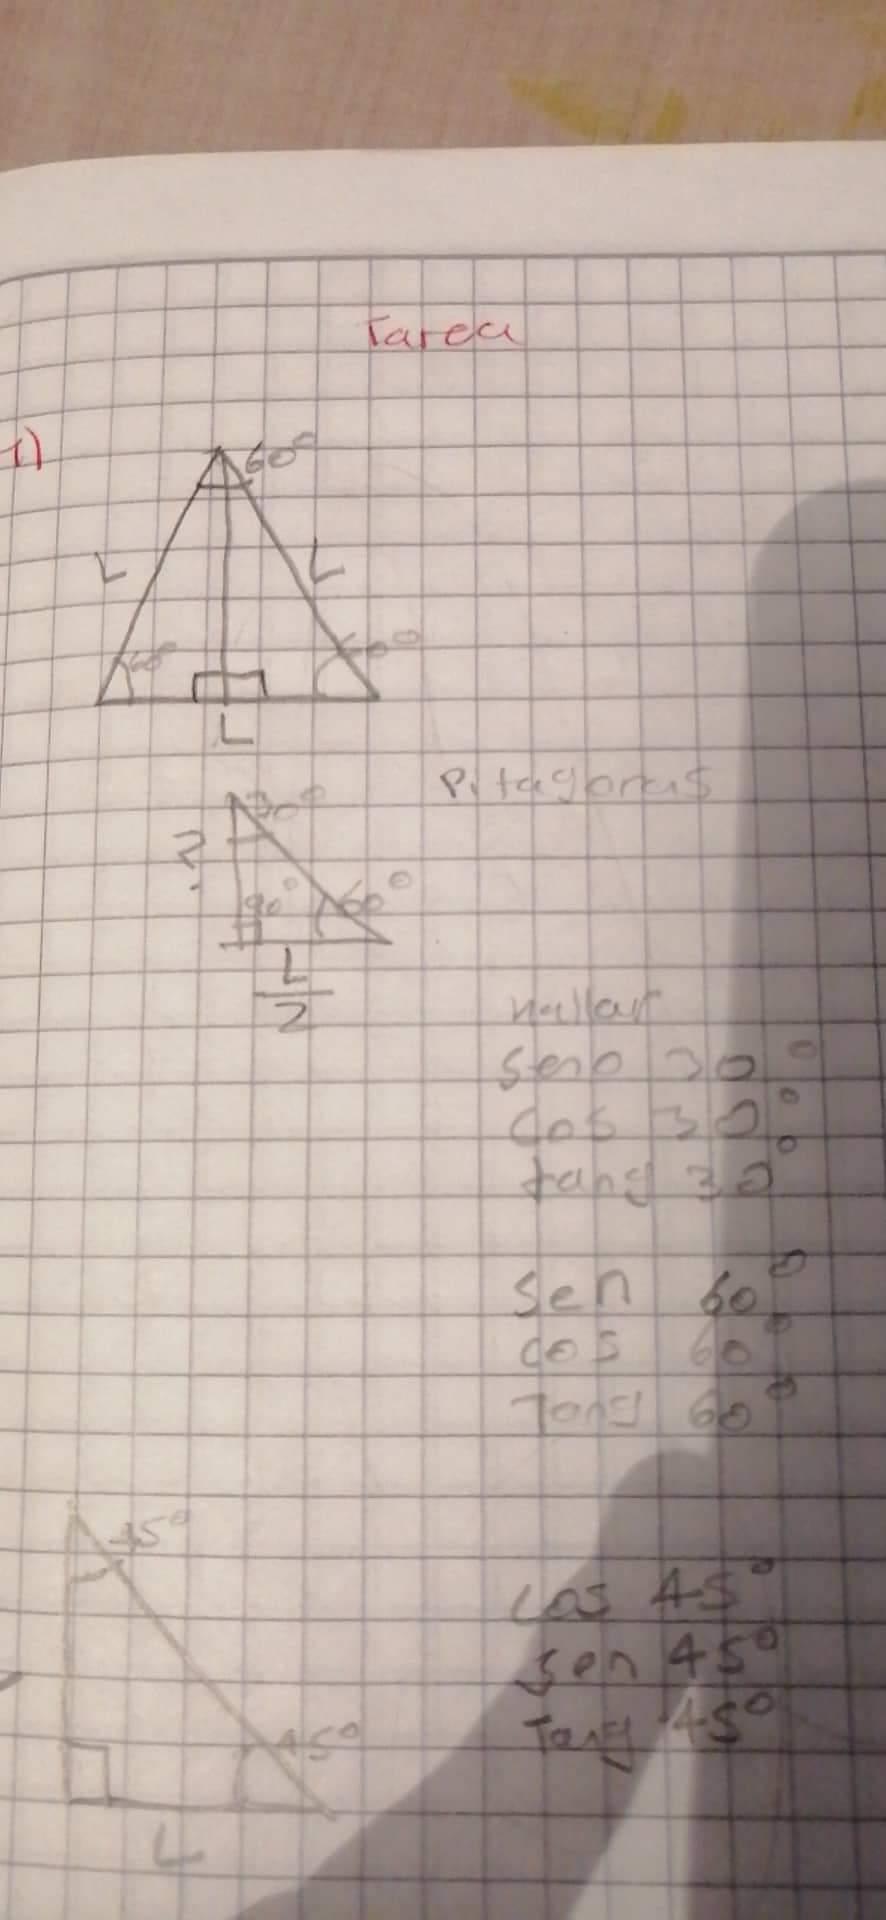 Tarea
1)
60°
L L
60° 60°
L
Pitagoras
30°
?
90° 60°
L
2
hallar
seno 30°
cos 30°
tang 30°
sen 60°
cos 60°
Tang 60°
45°
cos 45°
sen 45°
45° Tang 45°
L